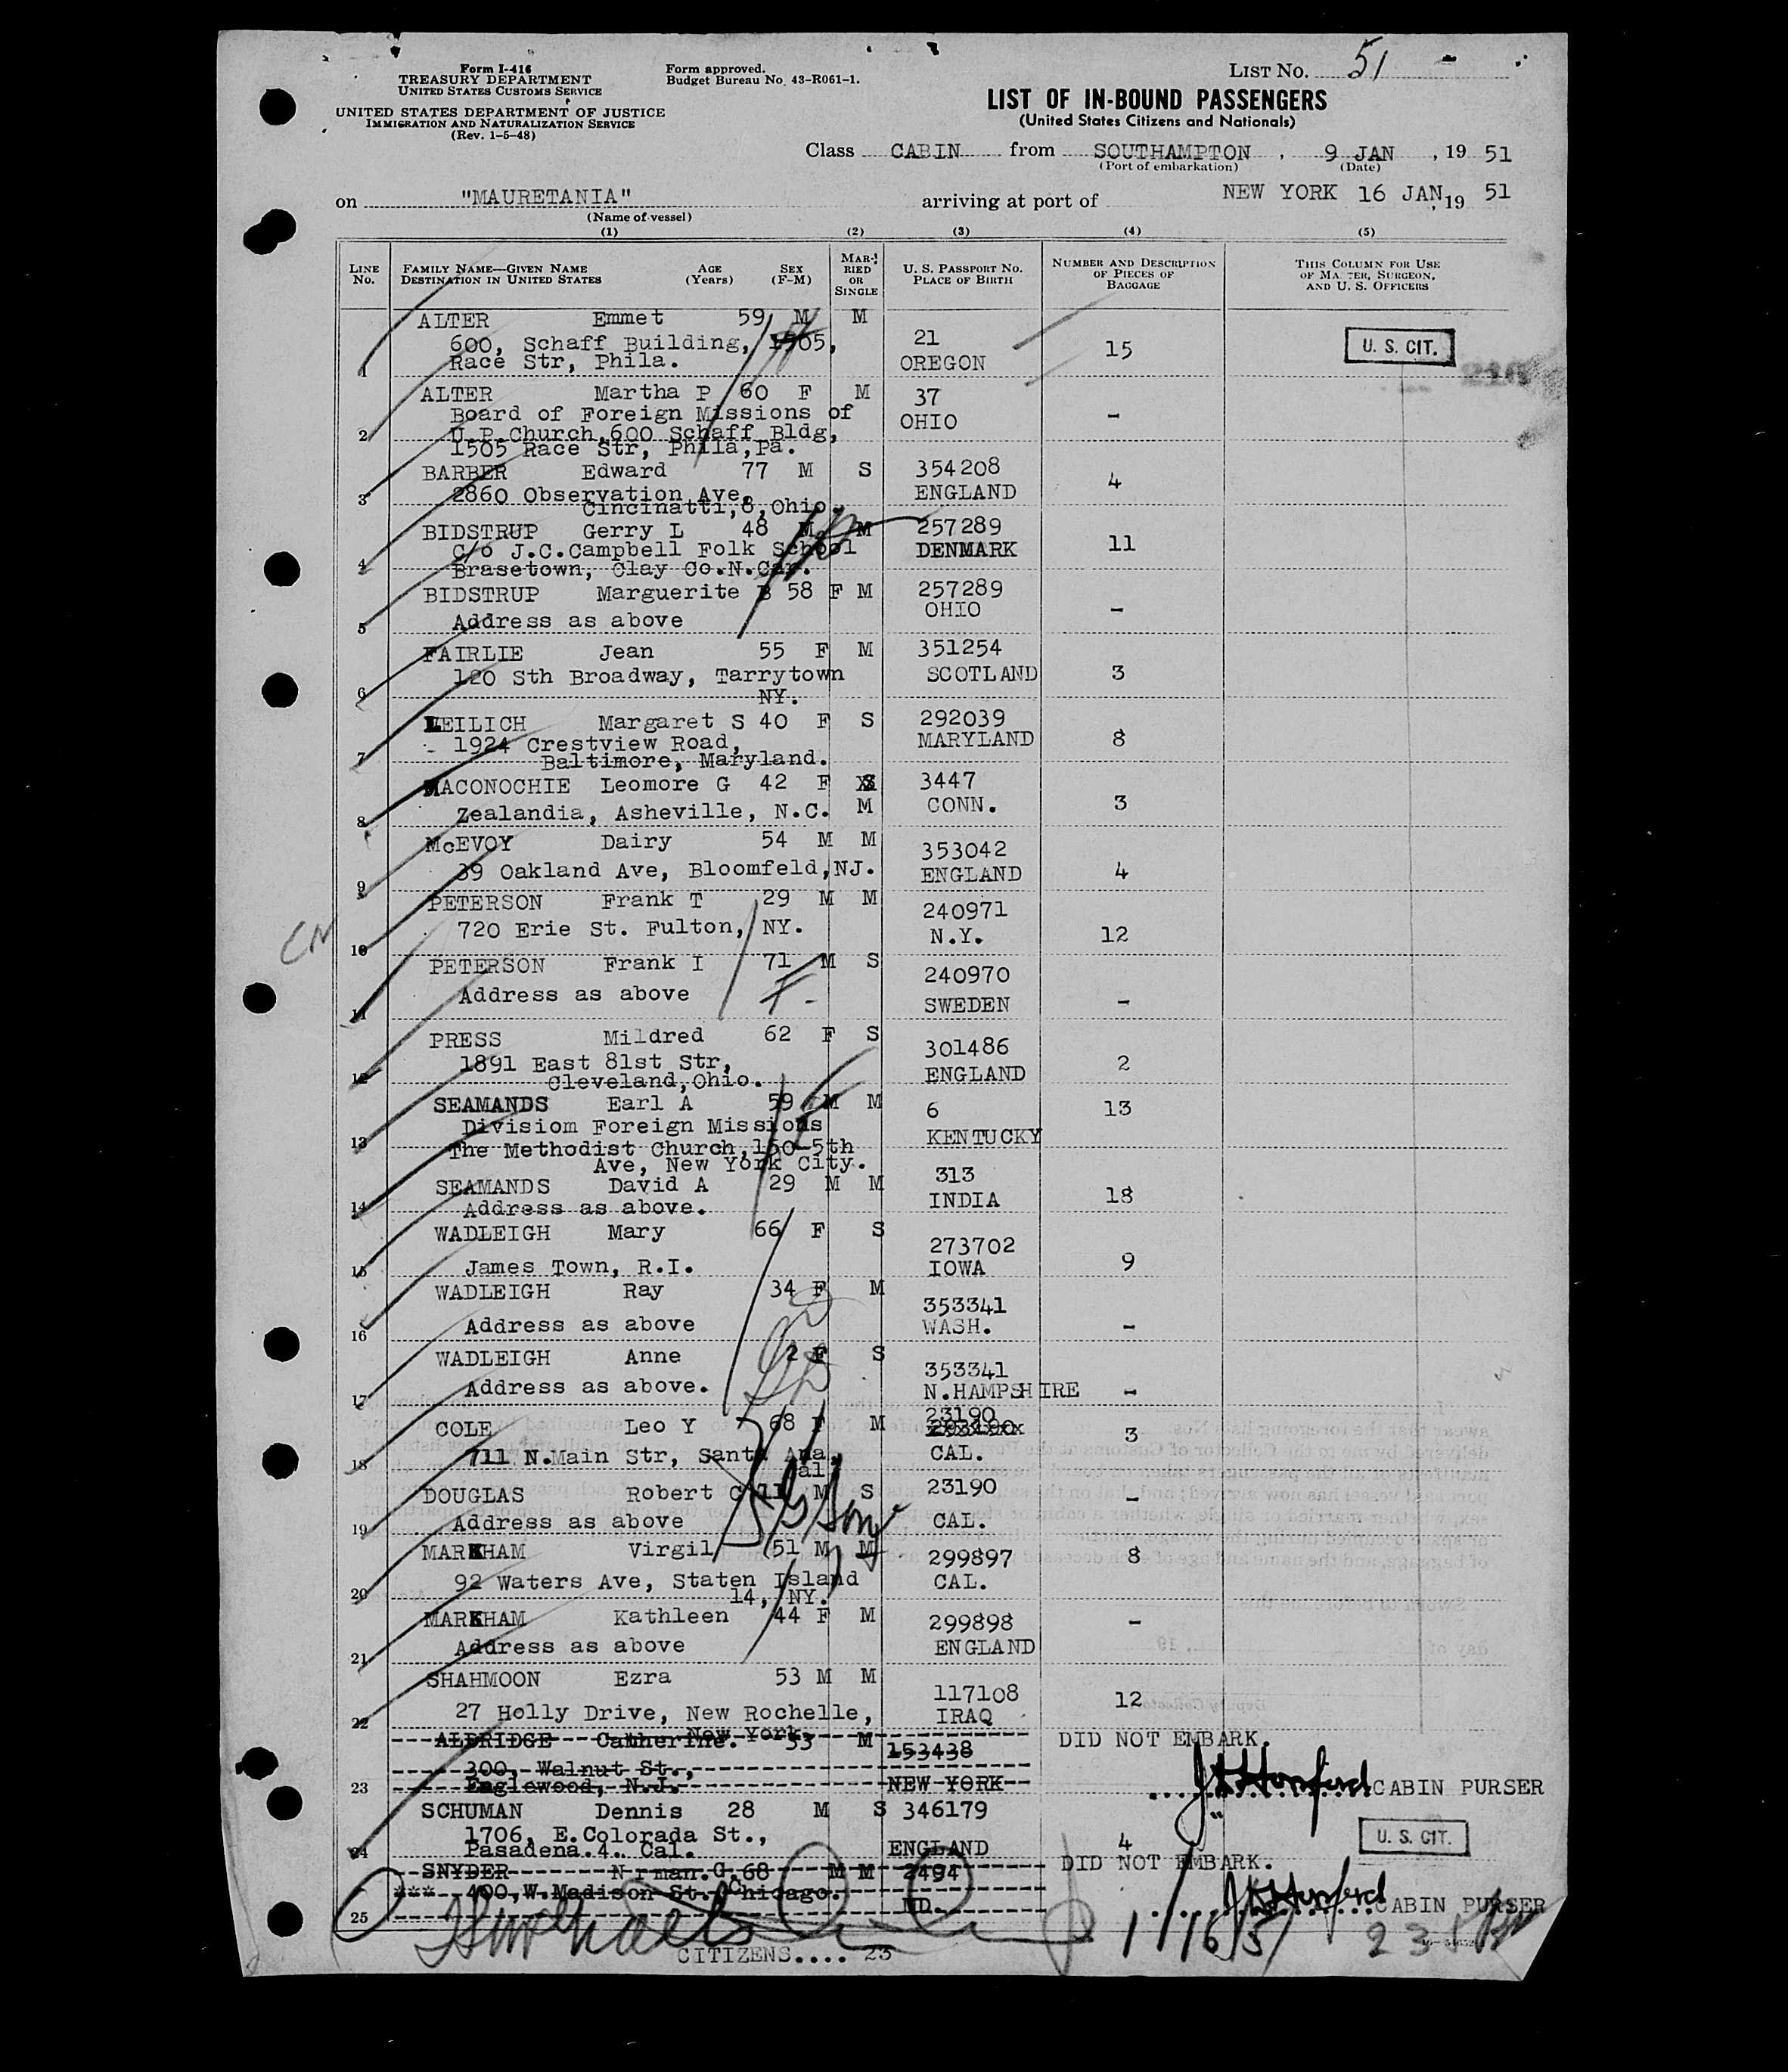 Form I-416
TREASURY DEPARTMENT
UNITED STATES CUSTOMS SERVICE
UNITED STATES DEPARTMENT OF JUSTICE
IMMIGRATION AND NATURALIZATION SERVICE
(Rev. 1-5-48)
Form approved.
Budget Bureau No. 43-R061-1.
LIST NO. 51
LIST OF IN-BOUND PASSENGERS
(United States Citizens and Nationals)
Class CABIN from SOUTHAMPTON, 9 JAN, 19 51
(Port of embarkation) (Date)
on "MAURETANIA" arriving at port of NEW YORK 16 JAN, 19 51
(Name of vessel)
(1) (2) (3) (4) (5)
LINE NO.
FAMILY NAME—GIVEN NAME AGE SEX
DESTINATION IN UNITED STATES (Years) (F-M)
MARRIED OR SINGLE
U. S. PASSPORT NO.
PLACE OF BIRTH
NUMBER AND DESCRIPTION OF PIECES OF BAGGAGE
THIS COLUMN FOR USE OF MASTER, SURGEON, AND U. S. OFFICERS
ALTER Emmet 59 M M
600, Schaff Building, 1505, 21 15 U. S. CIT.
1 Race Str, Phila. OREGON
ALTER Martha P 60 F M 37
Board of Foreign Missions of OHIO -
2 U.P.Church,600 Schaff Bldg,
1505 Race Str, Phila,Pa.
BARBER Edward 77 M S 354208
3 2860 Observation Ave, ENGLAND 4
Cincinatti,8,Ohio.
BIDSTRUP Gerry L 48 M M 257289
C/o J.C.Campbell Folk School DENMARK 11
4 Brasetown, Clay Co.N.Car.
BIDSTRUP Marguerite B 58 F M 257289
OHIO -
5 Address as above
FAIRLIE Jean 55 F M 351254
120 Sth Broadway, Tarrytown SCOTLAND 3
6 NY.
LEILICH Margaret S 40 F S 292039
1924 Crestview Road, MARYLAND 8
7 Baltimore, Maryland.
MACONOCHIE Leomore G 42 F S 3447
8 Zealandia, Asheville, N.C. M CONN. 3
McEVOY Dairy 54 M M 353042
9 39 Oakland Ave, Bloomfeld,NJ. ENGLAND 4
PETERSON Frank T 29 M M 240971
10 720 Erie St. Fulton, NY. N.Y. 12
CN
PETERSON Frank I 71 M S 240970
F.
11 Address as above SWEDEN -
PRESS Mildred 62 F S 301486
1891 East 81st Str, ENGLAND 2
12 Cleveland,Ohio.
SEAMANDS Earl A 59 M M 6 13
Divisiom Foreign Missions KENTUCKY
13 The Methodist Church,150-5th
Ave, New York City.
SEAMANDS David A 29 M M 313
14 Address as above. INDIA 18
WADLEIGH Mary 66 F S 273702
15 James Town, R.I. IOWA 9
WADLEIGH Ray 34 F M 353341
16 Address as above WASH. -
WADLEIGH Anne 2 F S 353341
17 Address as above. N.HAMPSHIRE -
COLE Leo Y 68 F M 23190 3
18 711 N.Main Str, Santa Ana, CAL.
Cal
DOUGLAS Robert C 11 M S 23190 -
19 Address as above CAL.
MARKHAM Virgil 51 M M 299897 8
92 Waters Ave, Staten Island CAL.
20 14, NY.
MARKHAM Kathleen 44 F M 299898 -
21 Address as above ENGLAND
SHAHMOON Ezra 53 M M 117108 12
22 27 Holly Drive, New Rochelle, IRAQ
New York.
ALDRIDGE Catherine. 53 M 153438 DID NOT EMBARK.
300, Walnut St.,
23 Englewood, N.J. NEW YORK CABIN PURSER
SCHUMAN Dennis 28 M S 346179
1706, E.Colorada St., 4 U. S. CIT.
24 Pasadena.4. Cal. ENGLAND
SNYDER Norman.G.68 M M 2494 DID NOT EMBARK.
*** 400,W.Madison St. Chicago.
25 MD. CABIN PURSER
1/16/51 23
CITIZENS.... 23